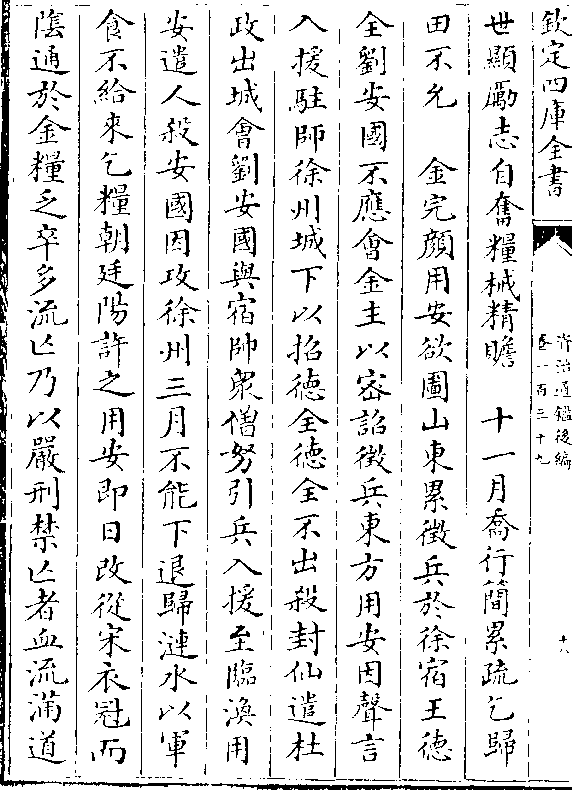 欽定四庫全書
資治通鑑後編
卷一百三十九
十八
世顯勵志自奮糧械精贍　十一月喬行簡累疏乞歸
田不允　金完顔用安欲圖山東累徴兵於徐宿王德
全劉安國不應會金主以宻詔徴兵東方用安因聲言
入援駐師徐州城下以招德全德全不出殺封仙遣杜
政出城會劉安國與宿帥衆僧努引兵入援至臨渙用
安遣人殺安國因攻徐州三月不能下退歸漣水以軍
食不給來乞糧朝廷陽許之用安即日改從宋衣冠而
隂通於金糧乏卒多流亡乃以嚴刑禁亡者血流滿道